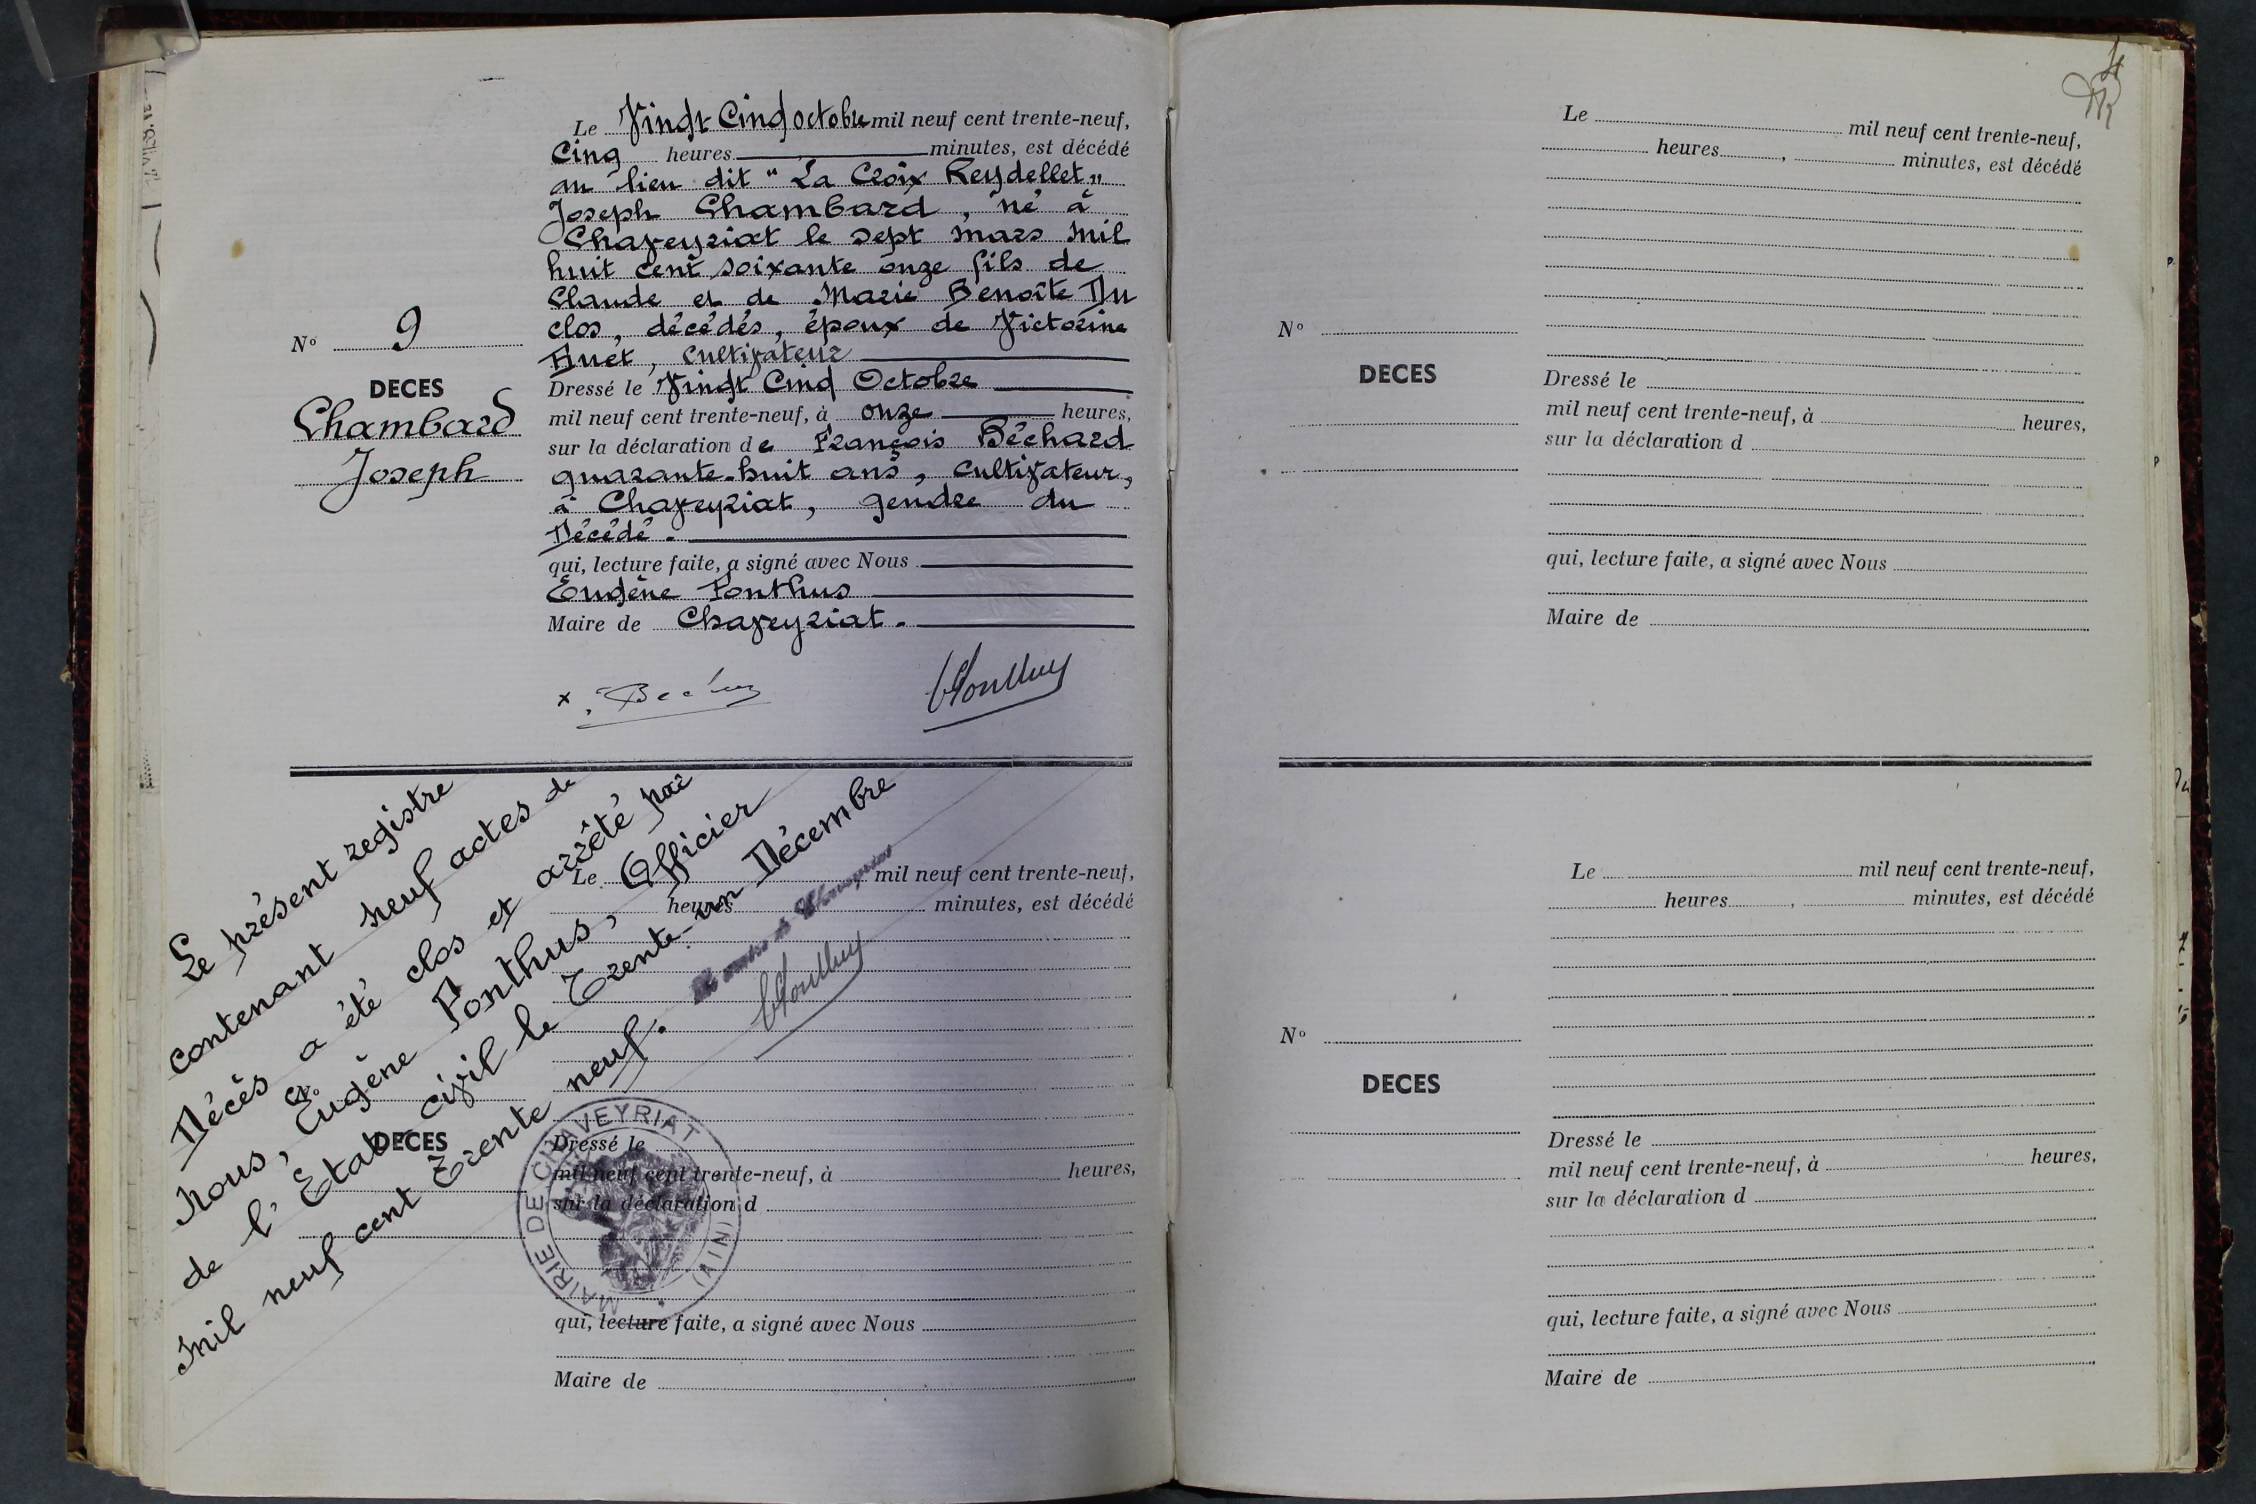 Le Vingt Cinq octobre mil neuf cent trente-neuf,
Cinq heures minutes, est décédé
au lieu dit "La Croix Reydellet"
Joseph Chambard, né à
Chaveyriat le sept mars mil
huit cent soixante onze fils de
Claude et de Marie Benoîte Du
clos, décédés, époux de Victorine
Buet, cultivateur
Nº 9
DECES
Chambard
Joseph
Dressé le Vingt Cinq Octobre
mil neuf cent trente-neuf, à onze heures,
sur la déclaration de François Béchard
quarante-huit ans, cultivateur,
à Chaveyriat, gendre du
Décédé.
qui, lecture faite, a signé avec Nous
Eugène Ponthus
Maire de Chaveyriat.
Le présent registre
contenant neuf actes de
Décès a été clos et arrêté par
nous, Eugène Ponthus, Officier
de l'Etat civil le Trente-un Décembre
mil neuf cent Trente neuf.
Le mil neuf cent trente-neuf,
heures minutes, est décédé
Nº
DECES
Dressé le
mil neuf cent trente-neuf, à heures,
sur la déclaration d
qui, lecture faite, a signé avec Nous
Maire de
MAIRIE DE CHAVEYRIAT
Le mil neuf cent trente-neuf,
heures, minutes, est décédé
Nº
DECES
Dressé le
mil neuf cent trente-neuf, à heures,
sur la déclaration d
qui, lecture faite, a signé avec Nous
Maire de
Le mil neuf cent trente-neuf,
heures, minutes, est décédé
Nº
DECES
Dressé le
mil neuf cent trente-neuf, à heures,
sur la déclaration d
qui, lecture faite, a signé avec Nous
Maire de